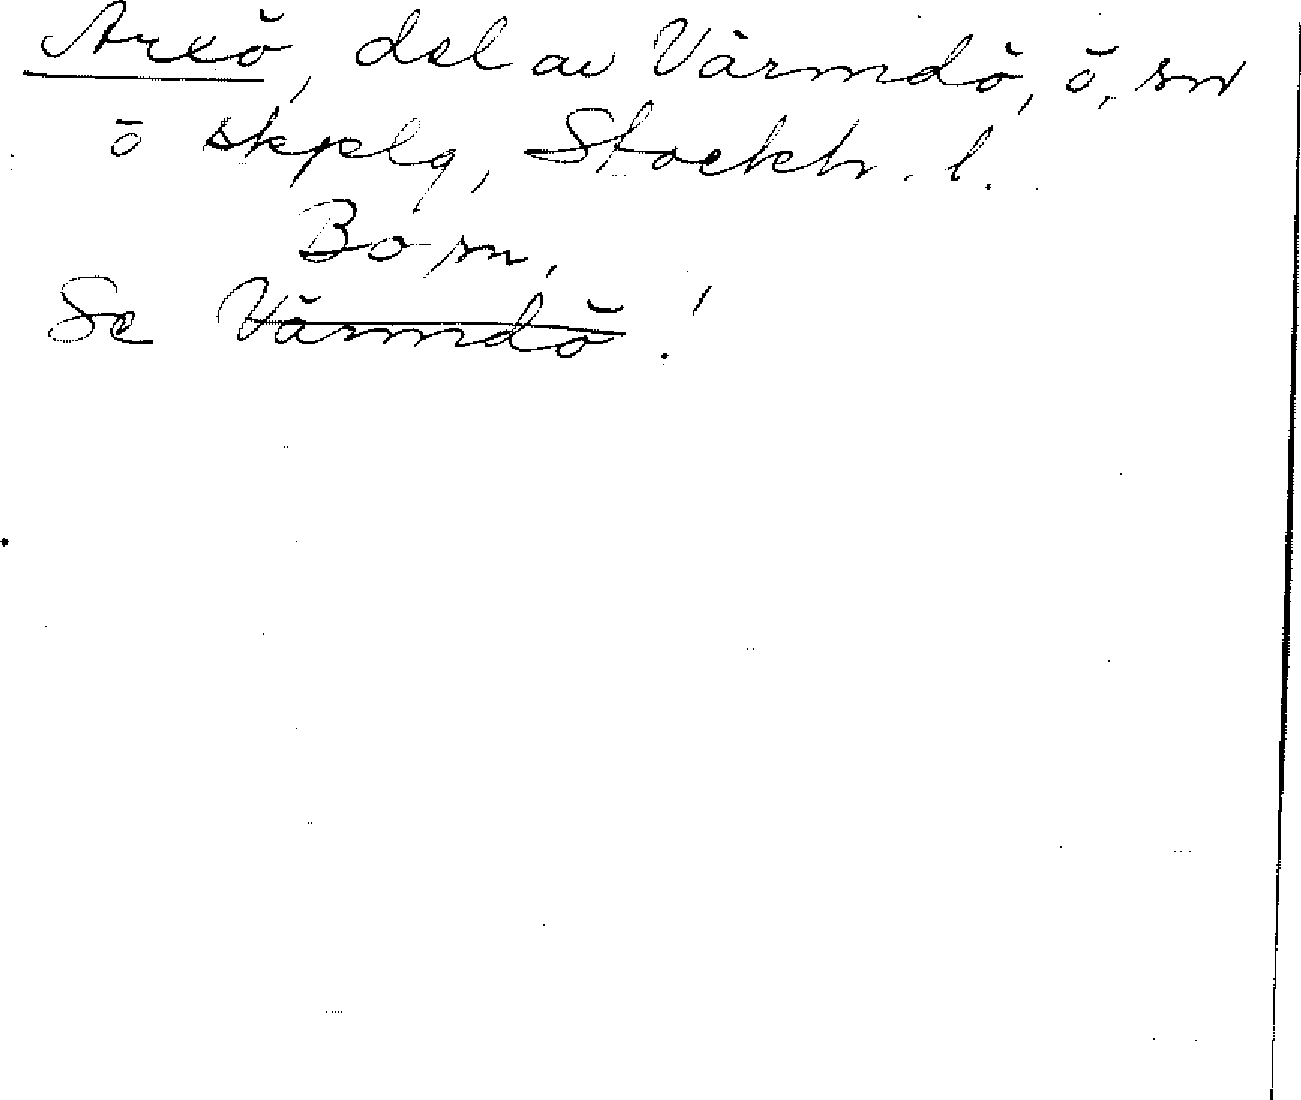 Arxö, del av Värmdö, ö, sn
o skplg, Stockh. l.
Bo sn,
Se Värmdö!